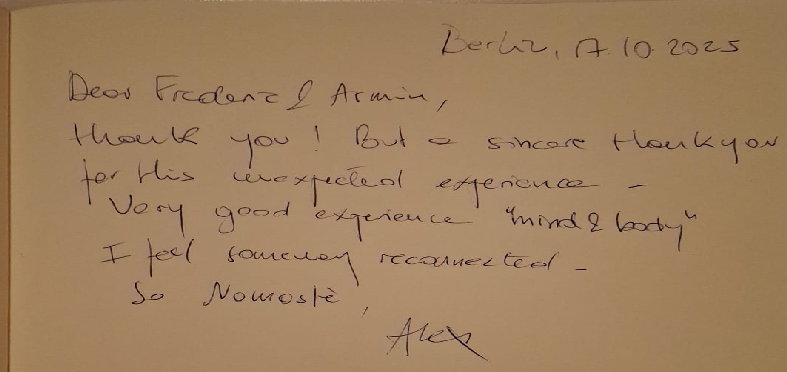 Berlin, 17.10.2025
Dear Frederic & Armin,
thank you! But a sincere thank you
for this unexpected experience -
Very good experience "mind & body"
I feel someway reconnected -
So Namastè,
Alex